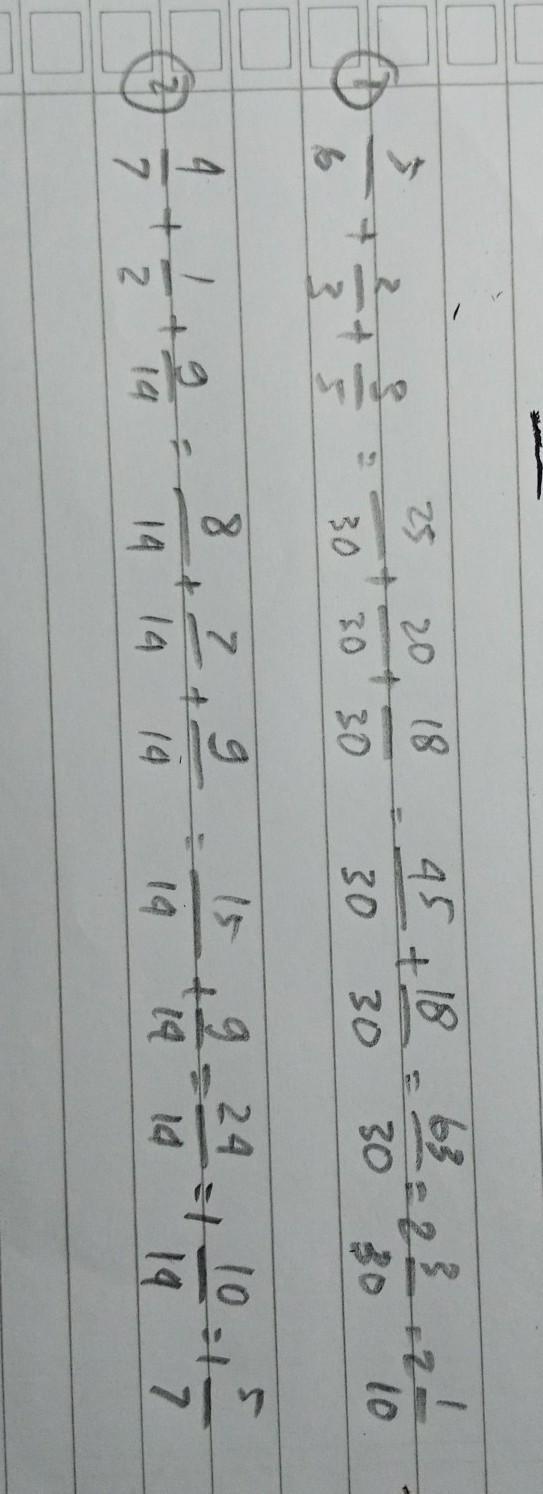 ① 5/6 + 2/3 + 3/5 = 25/30 + 20/30 + 18/30 = 45/30 + 18/30 = 63/30 = 2 3/30 = 2 1/10
② 4/7 + 1/2 + 9/14 = 8/14 + 7/14 + 9/14 = 15/14 + 9/14 = 24/14 = 1 10/14 = 1 5/7